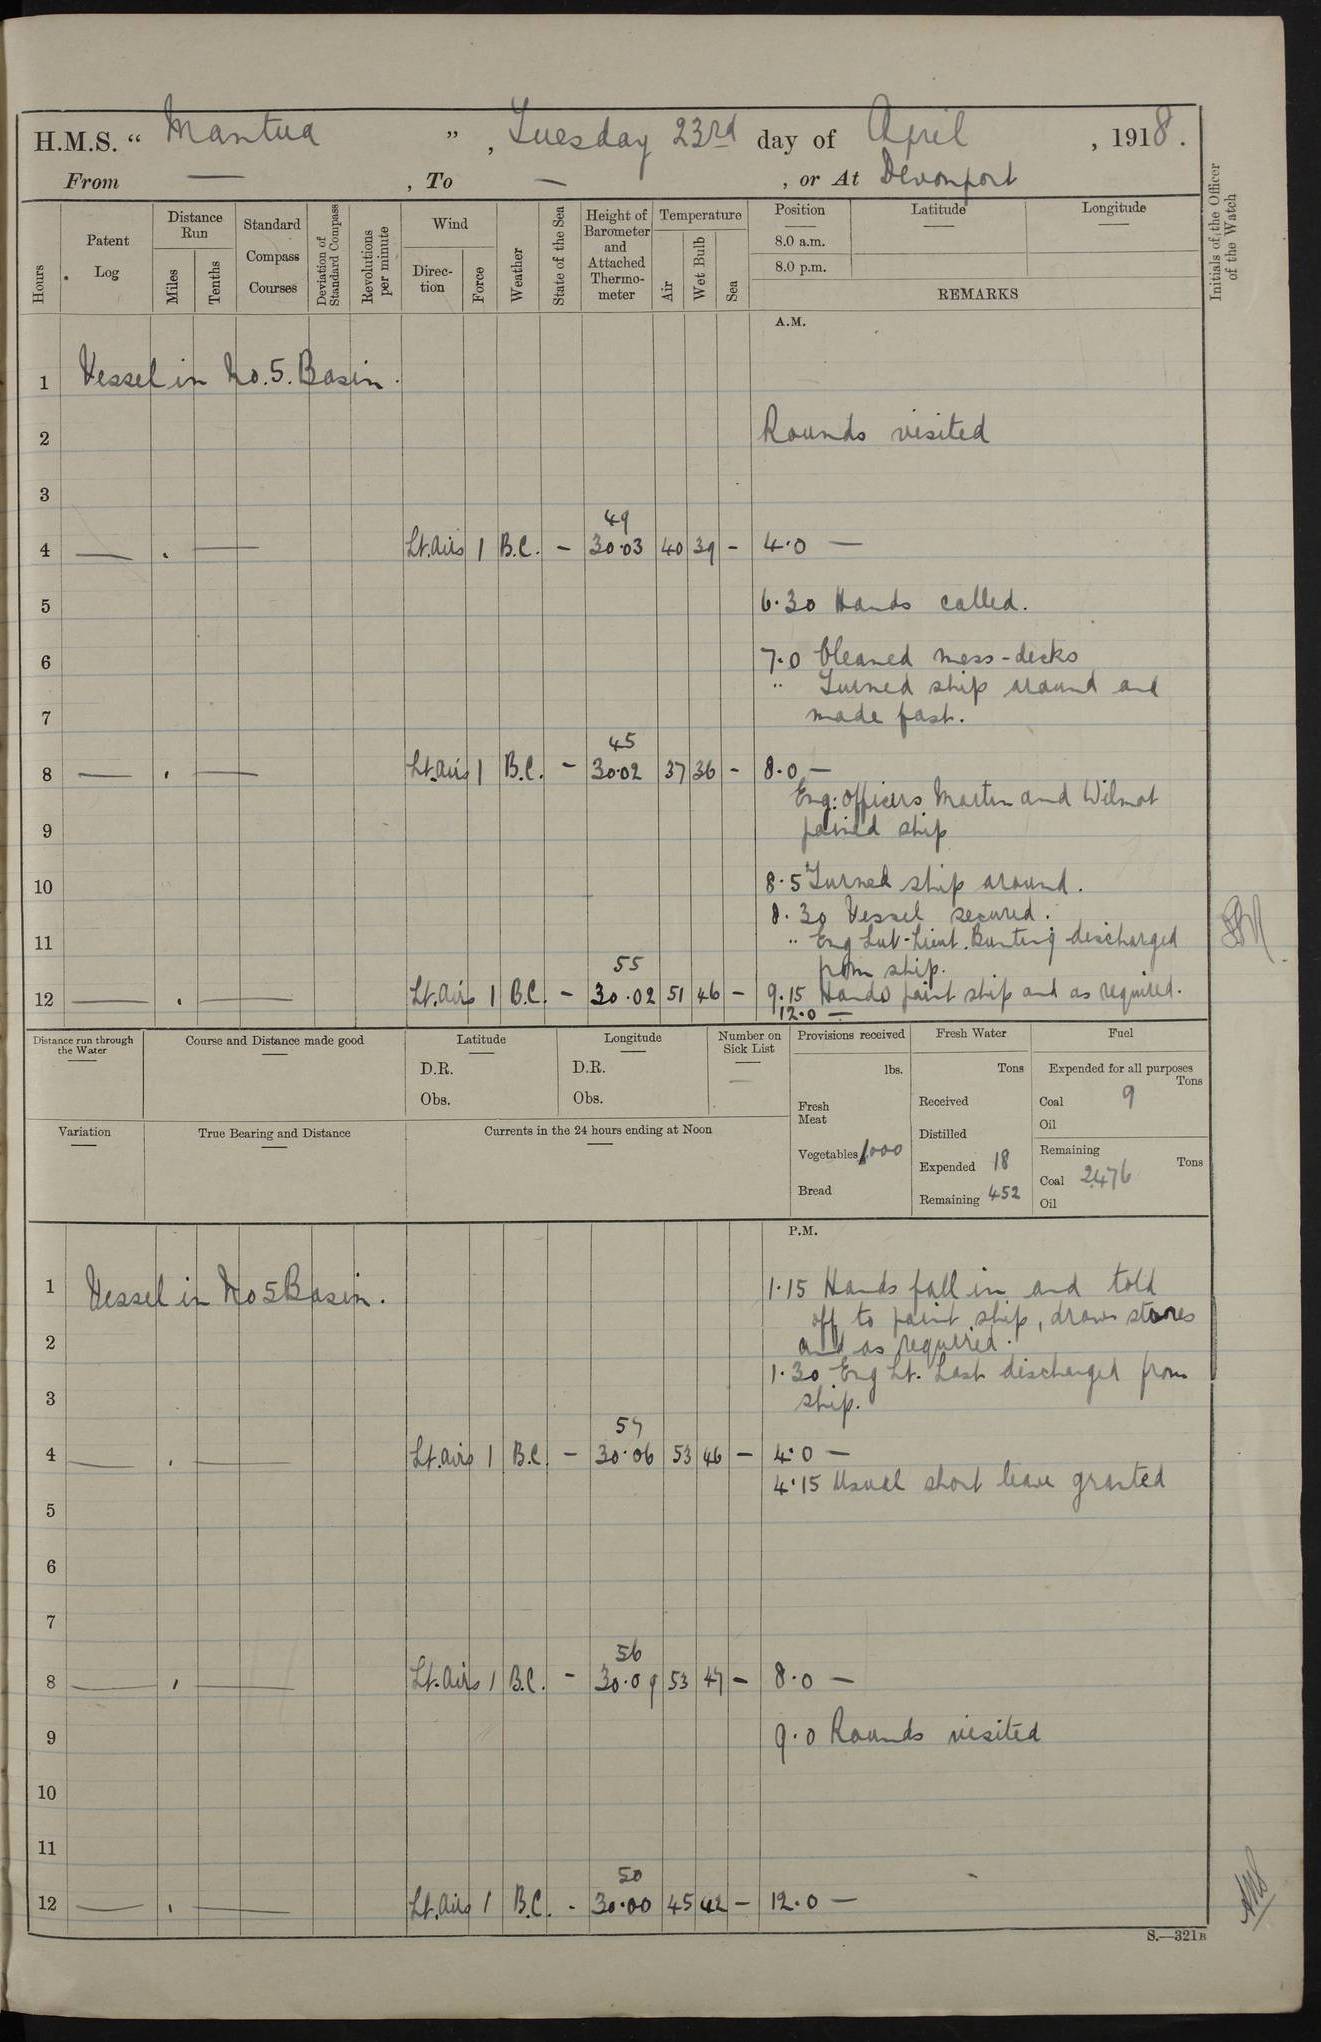 H.M.S. “ Mantua ”, Tuesday 23rd day of April, 1918.
From —, To —, or At Devonport
Hours
Patent Log
Distance Run
Miles
Tenths
Standard Compass Courses
Deviation of Standard Compass
Revolutions per minute
Wind
Direction
Force
Weather
State of the Sea
Height of Barometer and Attached Thermometer
Temperature
Air
Wet Bulb
Sea
Position
Latitude
Longitude
8.0 a.m.
8.0 p.m.
REMARKS
Initials of the Officer of the Watch
A.M.
1 Vessel in No. 5. Basin.
2 Rounds visited
3
49
4 — . — Lt. airs 1 B.C. - 30.03 40 39 - 4.0 —
5 6.30 Hands called.
6 7.0 Cleaned mess-decks
" Turned ship around and
7 made fast.
45
8 — . — Lt. airs 1 B.C. - 30.02 37 36 - 8.0 —
Eng: Officers Martin and Wilmot
9 joined ship
10 8.5 Turned ship around.
8.30 Vessel secured.
11 " Eng Sub-Lieut. Bunting discharged
55 from ship.
12 — . — Lt. airs 1 B.C. - 30.02 51 46 - 9.15 Hands paint ship and as required.
12.0 —
Distance run through the Water
Course and Distance made good
Latitude
D.R.
Obs.
Longitude
D.R.
Obs.
Number on Sick List
—
Provisions received
lbs.
Fresh Meat
Vegetables 1000
Bread
Fresh Water
Tons
Received
Distilled
Expended 18
Remaining 452
Fuel
Expended for all purposes
Tons
Coal 9
Oil
Remaining
Tons
Coal 2476
Oil
Variation
True Bearing and Distance
Currents in the 24 hours ending at Noon
P.M.
1 Vessel in No 5 Basin. 1.15 Hands fall in and told
off to paint ship, draw stores
2 and as required.
1.30 Eng Lt. Last discharged from
3 ship.
57
4 — . — Lt. airs 1 B.C. - 30.06 53 46 - 4.0 —
4.15 Usual short leave granted
5
6
7
56
8 — . — Lt. airs 1 B.C. - 30.09 53 47 - 8.0 —
9 9.0 Rounds visited
10
11
50
12 — . — Lt. airs 1 B.C. - 30.00 45 42 - 12.0 —
S.—321B